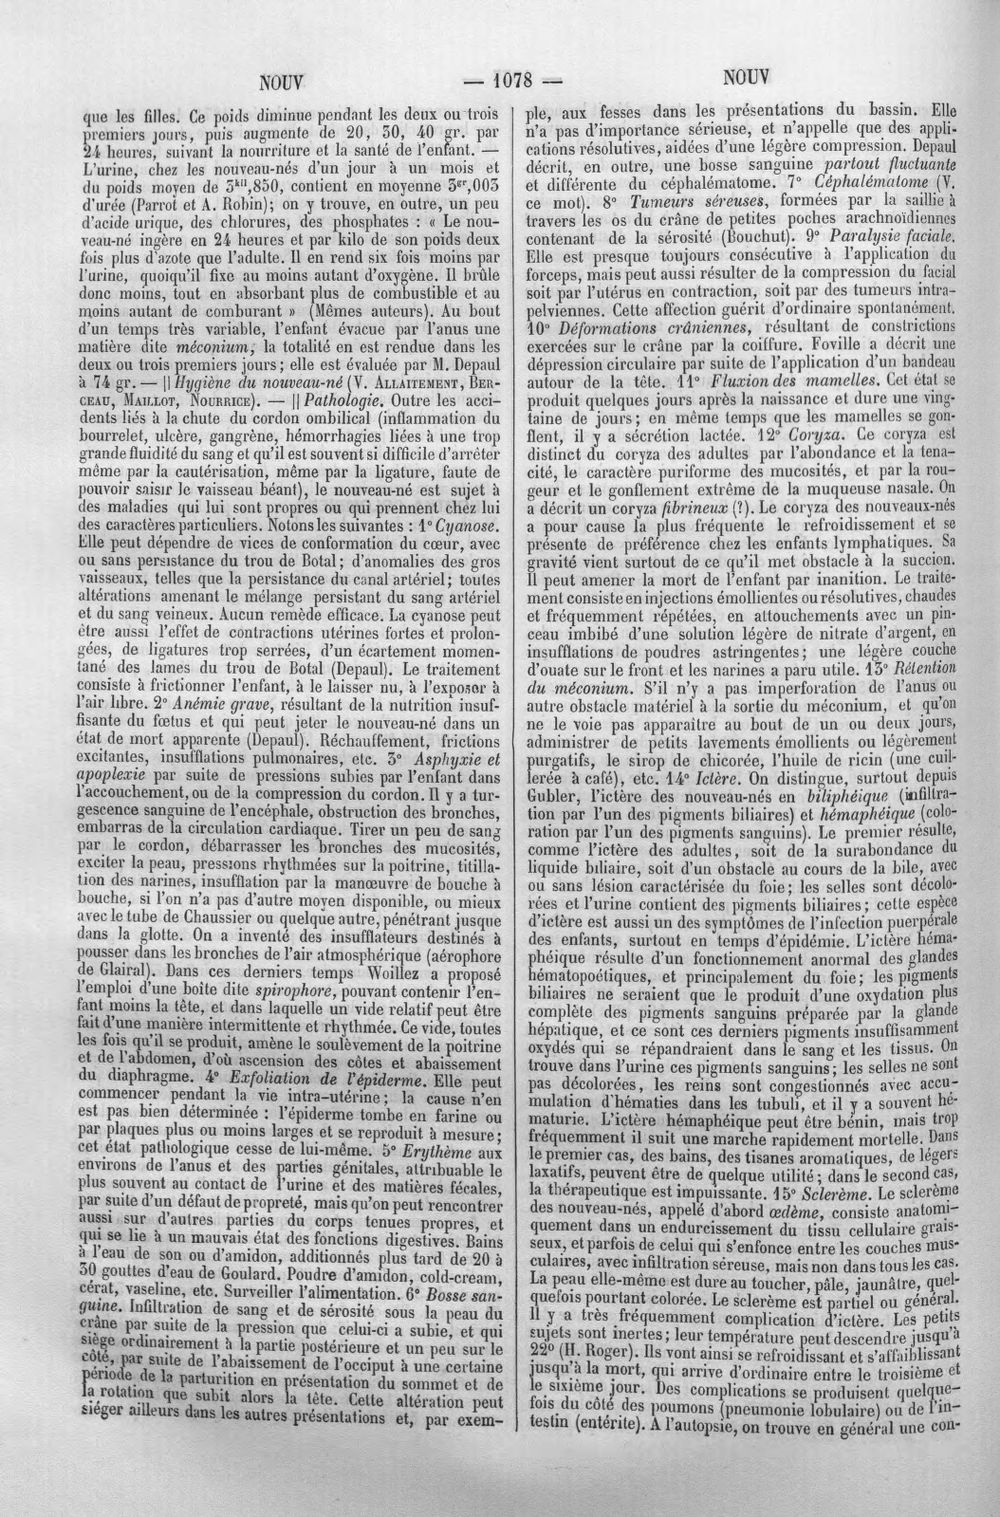 NOUV — 1078 — NOUV
que les filles. Ce poids diminue pendant les deux ou trois
premiers jours, puis augmente de 20, 30, 40 gr. par
24 heures, suivant la nourriture et la santé de l'enfant. —
L'urine, chez les nouveau-nés d'un jour à un mois et
du poids moyen de 3kil,850, contient en moyenne 3gr,003
d'urée (Parrot et A. Robin); on y trouve, en outre, un peu
d'acide urique, des chlorures, des phosphates : « Le nou-
veau-né ingère en 24 heures et par kilo de son poids deux
fois plus d'azote que l'adulte. Il en rend six fois moins par
l'urine, quoiqu'il fixe au moins autant d'oxygène. Il brûle
donc moins, tout en absorbant plus de combustible et au
moins autant de comburant » (Mêmes auteurs). Au bout
d'un temps très variable, l'enfant évacue par l'anus une
matière dite méconium; la totalité en est rendue dans les
deux ou trois premiers jours; elle est évaluée par M. Depaul
à 74 gr. — || Hygiène du nouveau-né (V. ALLAITEMENT, BER-
CEAU, MAILLOT, NOURRICE). — || Pathologie. Outre les acci-
dents liés à la chute du cordon ombilical (inflammation du
bourrelet, ulcère, gangrène, hémorrhagies liées à une trop
grande fluidité du sang et qu'il est souvent si difficile d'arrêter
même par la cautérisation, même par la ligature, faute de
pouvoir saisir le vaisseau béant), le nouveau-né est sujet à
des maladies qui lui sont propres ou qui prennent chez lui
des caractères particuliers. Notons les suivantes : 1° Cyanose.
Elle peut dépendre de vices de conformation du cœur, avec
ou sans persistance du trou de Botal; d'anomalies des gros
vaisseaux, telles que la persistance du canal artériel; toutes
altérations amenant le mélange persistant du sang artériel
et du sang veineux. Aucun remède efficace. La cyanose peut
être aussi l'effet de contractions utérines fortes et prolon-
gées, de ligatures trop serrées, d'un écartement momen-
tané des lames du trou de Botal (Depaul). Le traitement
consiste à frictionner l'enfant, à le laisser nu, à l'exposer à
l'air libre. 2° Anémie grave, résultant de la nutrition insuf-
fisante du fœtus et qui peut jeter le nouveau-né dans un
état de mort apparente (Depaul). Réchauffement, frictions
excitantes, insufflations pulmonaires, etc. 3° Asphyxie et
apoplexie par suite de pressions subies par l'enfant dans
l'accouchement, ou de la compression du cordon. Il y a tur-
gescence sanguine de l'encéphale, obstruction des bronches,
embarras de la circulation cardiaque. Tirer un peu de sang
par le cordon, débarrasser les bronches des mucosités,
exciter la peau, pressions rhythmées sur la poitrine, titilla-
tion des narines, insufflation par la manœuvre de bouche à
bouche, si l'on n'a pas d'autre moyen disponible, ou mieux
avec le tube de Chaussier ou quelque autre, pénétrant jusque
dans la glotte. On a inventé des insufflateurs destinés à
pousser dans les bronches de l'air atmosphérique (aérophore
de Glairal). Dans ces derniers temps Woillez a proposé
l'emploi d'une boîte dite spirophore, pouvant contenir l'en-
fant moins la tête, et dans laquelle un vide relatif peut être
fait d'une manière intermittente et rhythmée. Ce vide, toutes
les fois qu'il se produit, amène le soulèvement de la poitrine
et de l'abdomen, d'où ascension des côtes et abaissement
du diaphragme. 4° Exfoliation de l'épiderme. Elle peut
commencer pendant la vie intra-utérine; la cause n'en
est pas bien déterminée : l'épiderme tombe en farine ou
par plaques plus ou moins larges et se reproduit à mesure;
cet état pathologique cesse de lui-même. 5° Erythème aux
environs de l'anus et des parties génitales, attribuable le
plus souvent au contact de l'urine et des matières fécales,
par suite d'un défaut de propreté, mais qu'on peut rencontrer
aussi sur d'autres parties du corps tenues propres, et
qui se lie à un mauvais état des fonctions digestives. Bains
à l'eau de son ou d'amidon, additionnés plus tard de 20 à
30 gouttes d'eau de Goulard. Poudre d'amidon, cold-cream,
cérat, vaseline, etc. Surveiller l'alimentation. 6° Bosse san-
guine. Infiltration de sang et de sérosité sous la peau du
crâne par suite de la pression que celui-ci a subie, et qui
siège ordinairement à la partie postérieure et un peu sur le
côté, par suite de l'abaissement de l'occiput à une certaine
période de la parturition en présentation du sommet et de
la rotation que subit alors la tête. Cette altération peut
siéger ailleurs dans les autres présentations et, par exem-
ple, aux fesses dans les présentations du bassin. Elle
n'a pas d'importance sérieuse, et n'appelle que des appli-
cations résolutives, aidées d'une légère compression. Depaul
décrit, en outre, une bosse sanguine partout fluctuante
et différente du céphalématome. 7° Céphalématome (V.
ce mot). 8° Tumeurs séreuses, formées par la saillie à
travers les os du crâne de petites poches arachnoïdiennes
contenant de la sérosité (Bouchut). 9° Paralysie faciale.
Elle est presque toujours consécutive à l'application du
forceps, mais peut aussi résulter de la compression du facial
soit par l'utérus en contraction, soit par des tumeurs intra-
pelviennes. Cette affection guérit d'ordinaire spontanément.
10° Déformations crâniennes, résultant de constrictions
exercées sur le crâne par la coiffure. Foville a décrit une
dépression circulaire par suite de l'application d'un bandeau
autour de la tête. 11° Fluxion des mamelles. Cet état se
produit quelques jours après la naissance et dure une ving-
taine de jours; en même temps que les mamelles se gon-
flent, il y a sécrétion lactée. 12° Coryza. Ce coryza est
distinct du coryza des adultes par l'abondance et la tena-
cité, le caractère puriforme des mucosités, et par la rou-
geur et le gonflement extrême de la muqueuse nasale. On
a décrit un coryza fibrineux (?). Le coryza des nouveaux-nés
a pour cause la plus fréquente le refroidissement et se
présente de préférence chez les enfants lymphatiques. Sa
gravité vient surtout de ce qu'il met obstacle à la succion.
Il peut amener la mort de l'enfant par inanition. Le traite-
ment consiste en injections émollientes ou résolutives, chaudes
et fréquemment répétées, en attouchements avec un pin-
ceau imbibé d'une solution légère de nitrate d'argent, en
insufflations de poudres astringentes; une légère couche
d'ouate sur le front et les narines a paru utile. 13° Rétention
du méconium. S'il n'y a pas imperforation de l'anus ou
autre obstacle matériel à la sortie du méconium, et qu'on
ne le voie pas apparaître au bout de un ou deux jours,
administrer de petits lavements émollients ou légèrement
purgatifs, le sirop de chicorée, l'huile de ricin (une cuil-
lerée à café), etc. 14° Ictère. On distingue, surtout depuis
Gubler, l'ictère des nouveau-nés en biliphéique (infiltra-
tion par l'un des pigments biliaires) et hémaphéique (colo-
ration par l'un des pigments sanguins). Le premier résulte,
comme l'ictère des adultes, soit de la surabondance du
liquide biliaire, soit d'un obstacle au cours de la bile, avec
ou sans lésion caractérisée du foie; les selles sont décolo-
rées et l'urine contient des pigments biliaires; cette espèce
d'ictère est aussi un des symptômes de l'infection puerpérale
des enfants, surtout en temps d'épidémie. L'ictère héma-
phéique résulte d'un fonctionnement anormal des glandes
hématopoétiques, et principalement du foie; les pigments
biliaires ne seraient que le produit d'une oxydation plus
complète des pigments sanguins préparée par la glande
hépatique, et ce sont ces derniers pigments insuffisamment
oxydés qui se répandraient dans le sang et les tissus. On
trouve dans l'urine ces pigments sanguins; les selles ne sont
pas décolorées, les reins sont congestionnés avec accu-
mulation d'hématies dans les tubuli, et il y a souvent hé-
maturie. L'ictère hémaphéique peut être bénin, mais trop
fréquemment il suit une marche rapidement mortelle. Dans
le premier cas, des bains, des tisanes aromatiques, de légers
laxatifs, peuvent être de quelque utilité; dans le second cas,
la thérapeutique est impuissante. 15° Sclerème. Le sclerème
des nouveau-nés, appelé d'abord œdème, consiste anatomi-
quement dans un endurcissement du tissu cellulaire grais-
seux, et parfois de celui qui s'enfonce entre les couches mus-
culaires, avec infiltration séreuse, mais non dans tous les cas.
La peau elle-même est dure au toucher, pâle, jaunâtre, quel-
quefois pourtant colorée. Le sclerème est partiel ou général.
Il y a très fréquemment complication d'ictère. Les petits
sujets sont inertes; leur température peut descendre jusqu'à
22° (H. Roger). Ils vont ainsi se refroidissant et s'affaiblissant
jusqu'à la mort, qui arrive d'ordinaire entre le troisième et
le sixième jour. Des complications se produisent quelque-
fois du côté des poumons (pneumonie lobulaire) ou de l'in-
testin (entérite). A l'autopsie, on trouve en général une con-